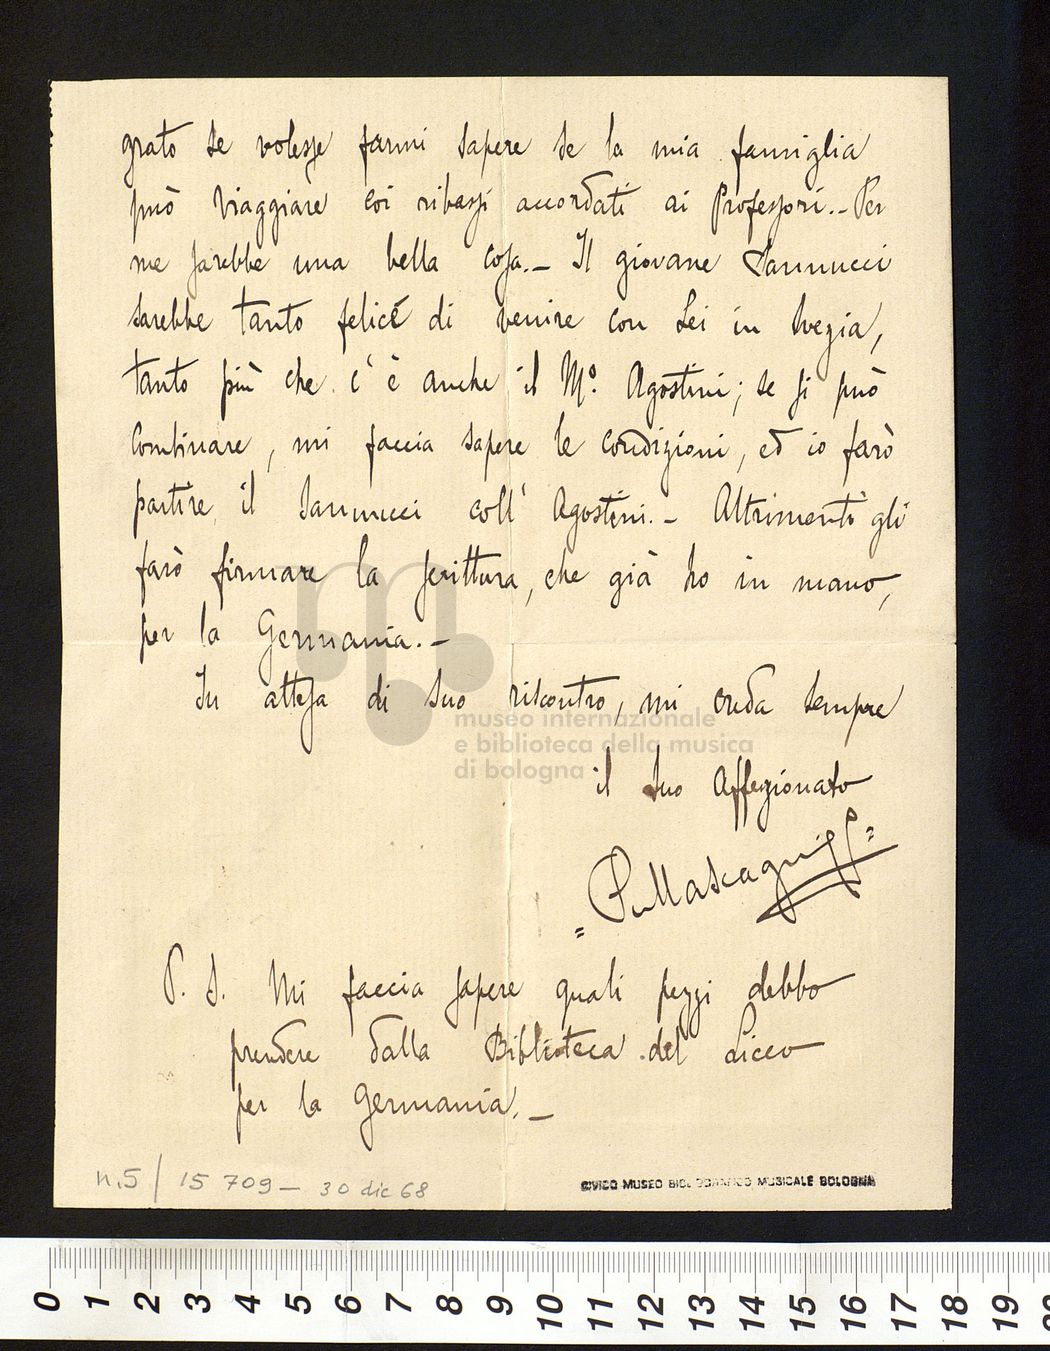 grato se volesse farmi sapere se la mia famiglia
può viaggiare coi ribassi accordati ai Professori.- Per
me sarebbe una bella cosa.- Il giovane Iannucci
sarebbe tanto felice di venire con Lei in Svezia,
tanto più che c'è anche il Mº. Agostini; se si può
combinare, mi faccia sapere le condizioni, ed io farò
partire il Iannucci coll' Agostini.- Altrimenti gli
farò firmare la scrittura, che già ho in mano,
per la Germania.-
In attesa di suo riscontro, mi creda sempre
il suo affezionato
=P. Mascagni=
P. S. Mi faccia sapere quali pezzi debbo
prendere dalla Biblioteca del Liceo
per la Germania.-
n.5/ 15 709 - 30 dic 68
CIVICO MUSEO BIBLIOGRAFICO MUSICALE BOLOGNA
museo internazionale
e biblioteca della musica
di bologna
0 1 2 3 4 5 6 7 8 9 10 11 12 13 14 15 16 17 18 19